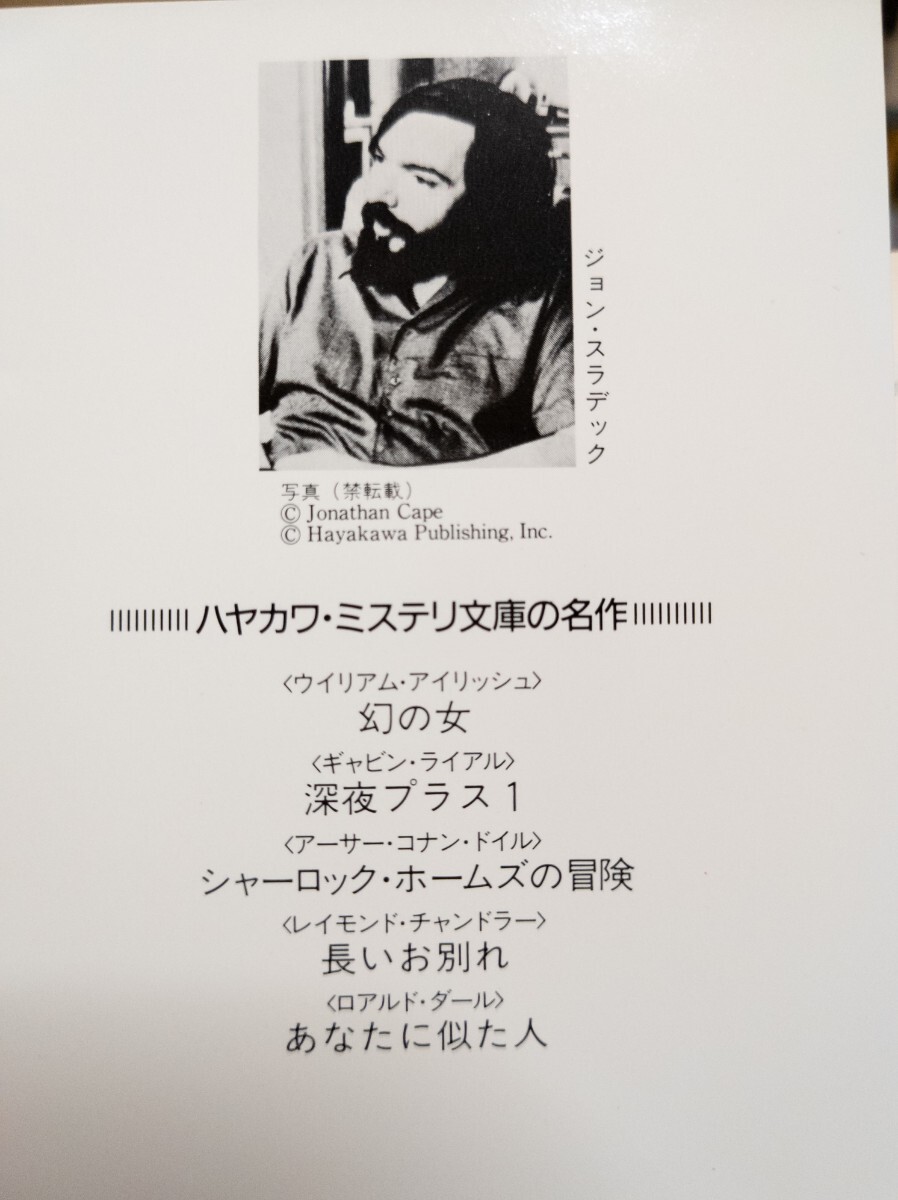 ジョン・スラデック
写真（禁転載）
© Jonathan Cape
© Hayakawa Publishing, Inc.
ハヤカワ・ミステリ文庫の名作
〈ウイリアム・アイリッシュ〉
幻の女
〈ギャビン・ライアル〉
深夜プラス1
〈アーサー・コナン・ドイル〉
シャーロック・ホームズの冒険
〈レイモンド・チャンドラー〉
長いお別れ
〈ロアルド・ダール〉
あなたに似た人